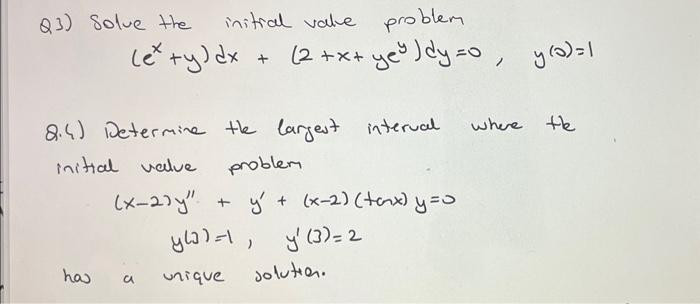 Q3) Solve the initial value problem
(eˣ+y)dx + (2+x+yeʸ)dy=0, y(0)=1
Q.4) Determine the largest interval where the
initial value problem
(x-2)y'' + y' + (x-2)(tanx)y=0
y(3)=1, y'(3)=2
has a unique solution.